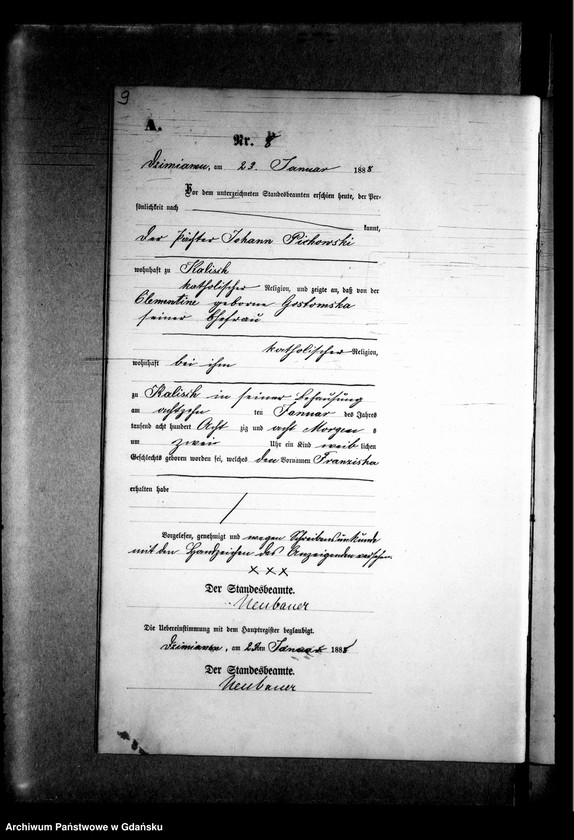 9
A.
Nr. 8
Dzimianen, am 23. Januar 1888
Vor dem unterzeichneten Standesbeamten erschien heute, der Per-
sönlichkeit nach
kannt,
der Pächter Johann Pichowski
wohnhaft zu Kalisch
katholischer Religion, und zeigte an, daß von der
Clementine geborne Gostomska
seiner Ehefrau
katholischer Religion,
wohnhaft bei ihm
zu Kalisch in seiner Behausung
am achtzehn ten Januar des Jahres
tausend acht hundert Acht zig und acht Morgens
um zwei Uhr ein Kind weib lichen
Geschlechts geboren worden sei, welches den Vornamen Franziska
erhalten habe
Vorgelesen, genehmigt und wegen Schreibensunkunde
mit den Handzeichen des Anzeigenden versehen.
XXX
Der Standesbeamte.
Neubauer
Die Uebereinstimmung mit dem Hauptregister beglaubigt.
Dzimianen, am 23ten Januar 1888
Der Standesbeamte.
Neubauer
Archiwum Państwowe w Gdańsku